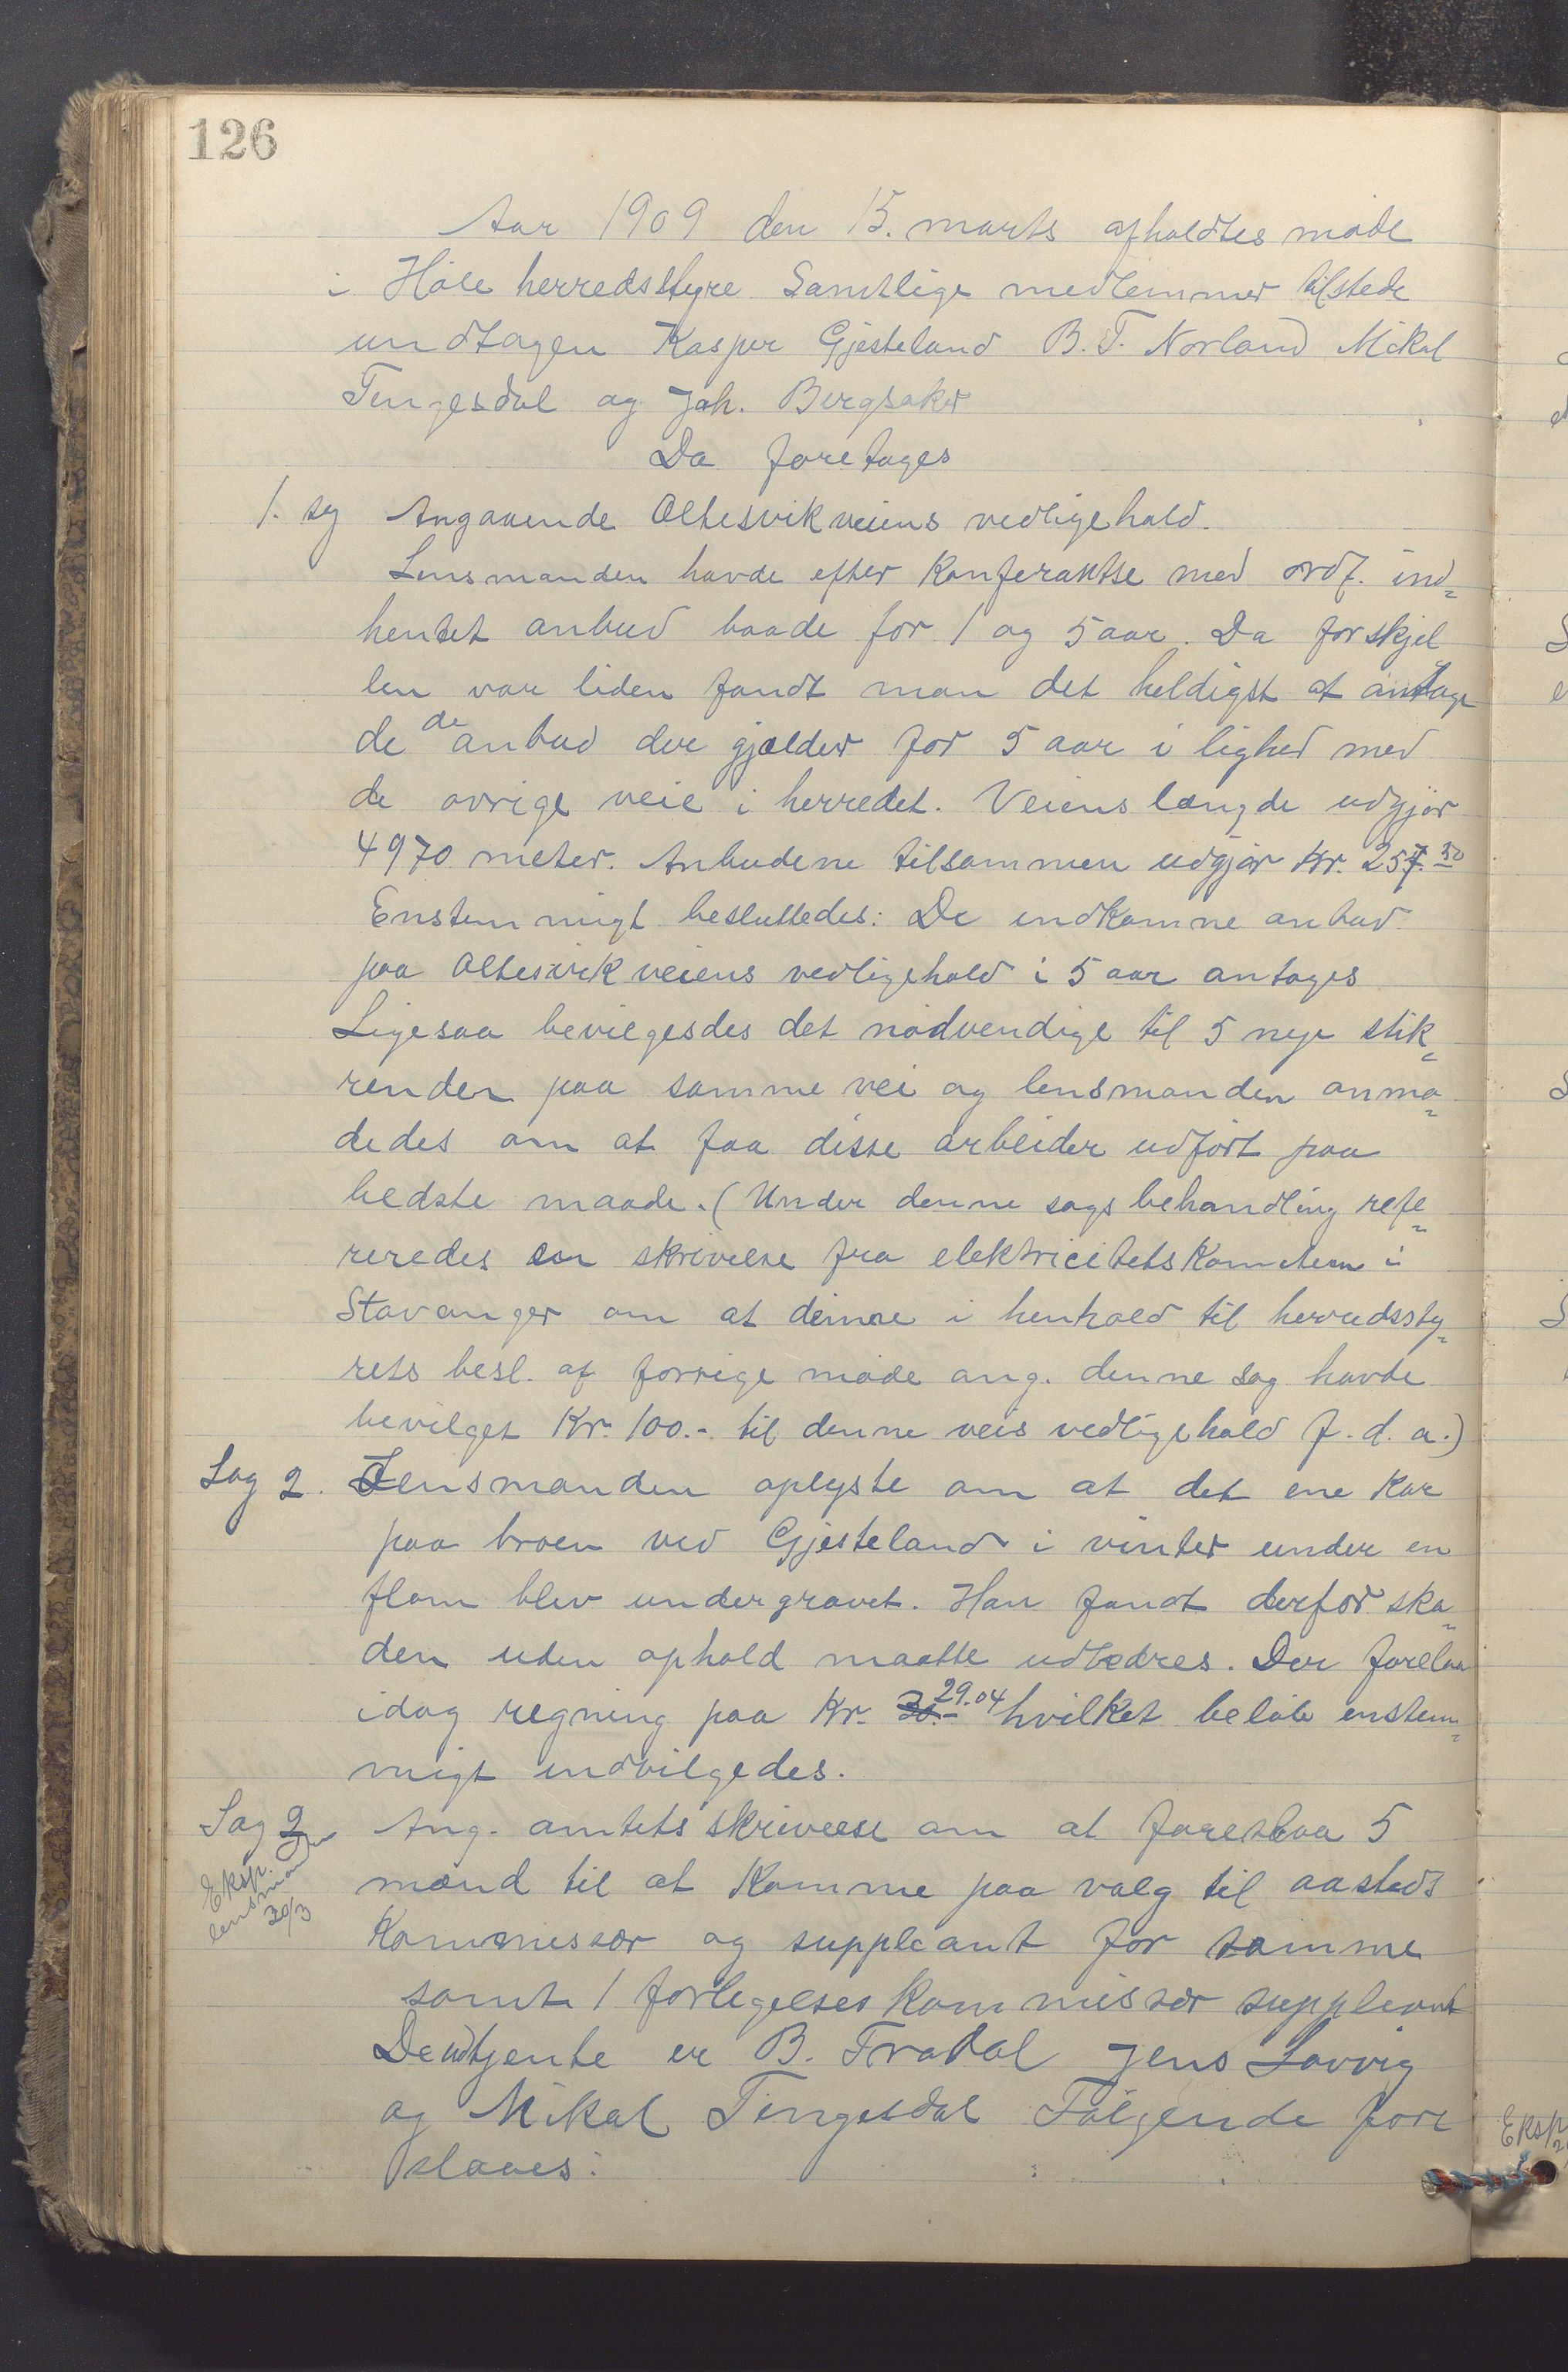 126
Aar 1909 den 15. marts afholdtes møde
i Høle herredsstyre Samtlige medlemmer tilstede
undtagen Kasper Gjesteland B. T. Norland Mikal
Tengesdal og Joh. Bergsaker
Da foretages
1. sg Angaaende Oltesvikveiens vedligehold.
Lensmanden havde efter Konferantse med ordf. ind-
hentet anbud baade for 1 og 5 aar. Da forskjel
len var liden fandt man det heldigst at antage
de de anbud der gjælder for 5 aar i lighed med
de øvrige veie i herredet. Veiens længde udgjør
4970 meter. Anbudene tilsammen udgjør Kr. 257.50
Enstemmigt besluttedes: De indkomne anbud
paa Oltesvikveiens vedligehold i 5 aar antages
Ligesaa bevilgesdes det nødvendige til 5 nye stik-
render paa samme vei og lensmanden anmo-
dedes om at faa disse arbeider udført paa
bedste maade. (Under denne sags behandling refe-
reredes en skrivelse fra elektricitetskomiteen i
Stavanger om at denne i henhold til herredssty-
rets besl. af forrige møde ang. denne sag havde
bevilget Kr. 100.- til denne veis vedligehold f. d. a.)
Sag 2. Lensmanden oplyste om at det ene Kar
paa broen ved Gjesteland i vinter under en
flom blev undergravet. Han fandt derfor ska-
den uden ophold maatte udbedres. Der forelaa
idag regning paa Kr. 30.- 29.04 hvilket beløb enstem-
migt indvilgedes.
Sag 2 Ang. amtets skrivelse om at foreslaa 5
Eksp.
lensman
30/3
mænd til at Komme paa valg til aasteds
Kommissær og suppleant for samme
samt 1 forligelseskommissær suppleant
De udtjente er B. Fradal Jens Løvvig
og Mikal Tengesdal Følgende fore
slaaes:
Eksp